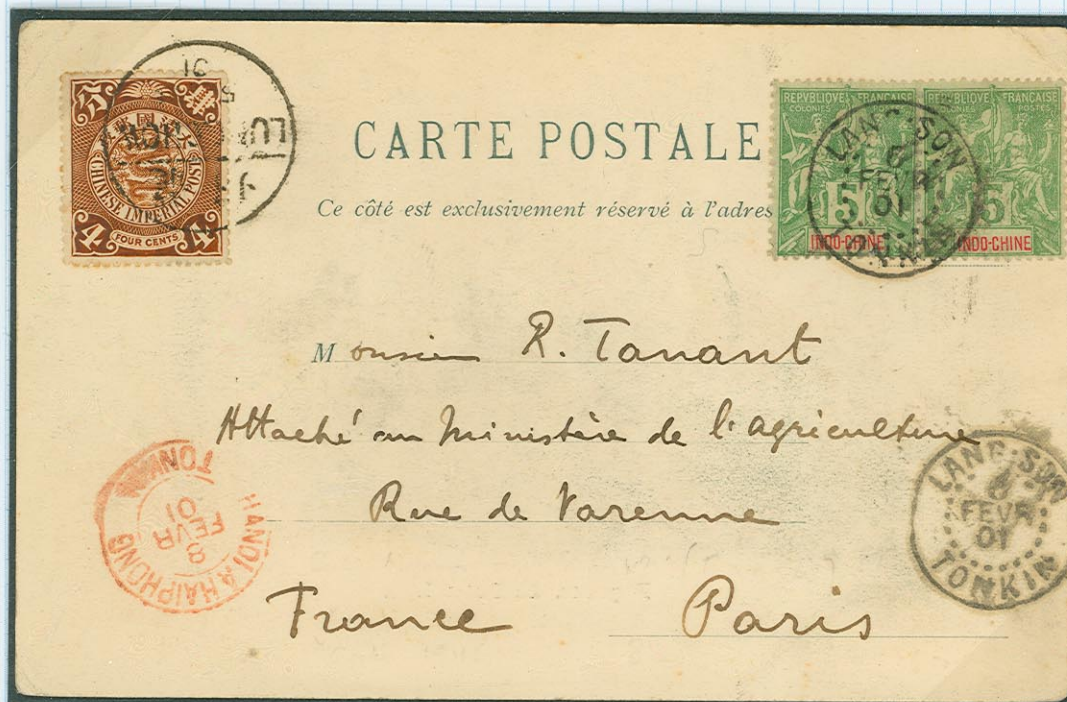 CHINESE IMPERIAL POST
4 4
FOUR CENTS
5
01
CARTE POSTALE
Ce côté est exclusivement réservé à l'adres
REPVBLIQVE FRANÇAISE
COLONIES POSTES
5
INDO-CHINE
REPVBLIQVE FRANÇAISE
COLONIES POSTES
5
INDO-CHINE
LANG-SON
6
FEVR
01
TONKIN
Monsieur R. Tanant
Attaché au Ministère de l'agriculture
Rue de Varenne
France Paris
HANOI A HAIPHONG
8
FEVR
01
TONKIN
LANG-SON
6
FEVR
01
TONKIN